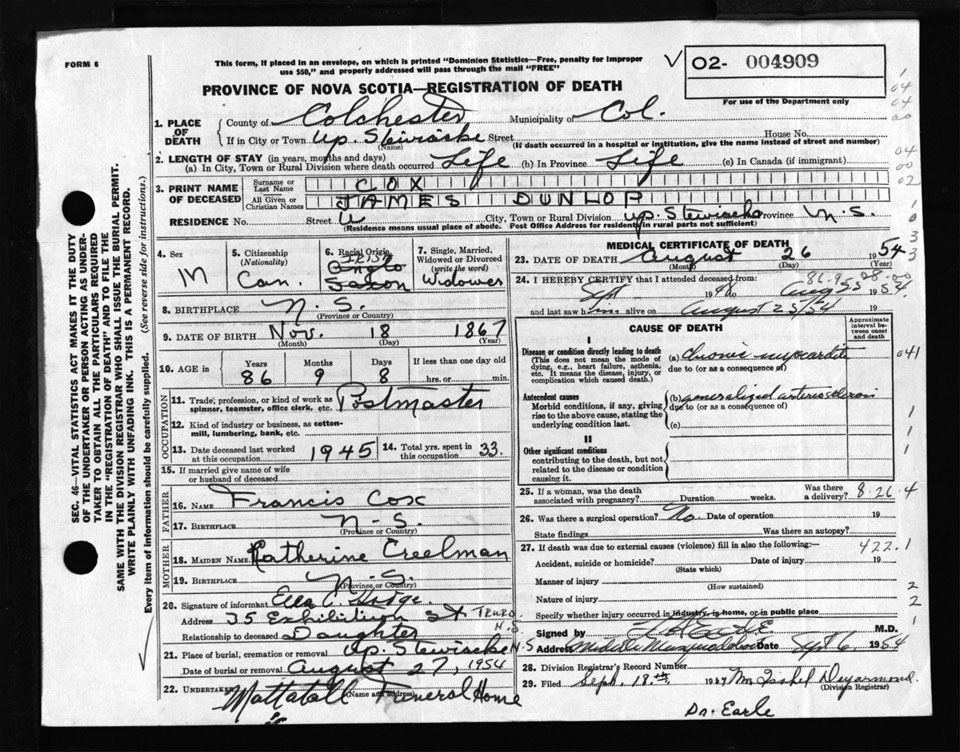 FORM 6
This form, if placed in an envelope, on which is printed "Dominion Statistics—Free, penalty for improper
use $50," and properly addressed will pass through the mail "FREE"
V 02- 004909
For use of the Department only
PROVINCE OF NOVA SCOTIA—REGISTRATION OF DEATH
1. PLACE OF DEATH
County of Colchester Municipality of Col.
If in City or Town Up. Stewiacke Street House No.
(Name) (If death occurred in a hospital or institution, give the name instead of street and number)
2. LENGTH OF STAY (in years, months and days)
(a) In City, Town or Rural Division where death occurred Life (b) In Province Life (c) In Canada (if immigrant)
3. PRINT NAME OF DECEASED
Surname or Last Name COX
All Given or Christian Names JAMES DUNLOP
RESIDENCE No. Street City, Town or Rural Division Up. Stewiacke Province N.S.
(Residence means usual place of abode. Post Office Address for residents in rural parts not sufficient)
4. Sex M
5. Citizenship (Nationality) Can.
6. Racial Origin Anglo Saxon
7. Single, Married, Widowed or Divorced (write the word) Widower
8. BIRTHPLACE N.S.
(Province or Country)
9. DATE OF BIRTH Nov. 18 1867
(Month) (Day) (Year)
10. AGE in Years Months Days If less than one day old
86 9 8 hrs. or min.
OCCUPATION
11. Trade, profession, or kind of work as spinner, teamster, office clerk, etc. Postmaster
12. Kind of industry or business, as cotton-mill, lumbering, bank, etc.
13. Date deceased last worked at this occupation 1945 14. Total yrs. spent in this occupation 33.
15. If married give name of wife or husband of deceased
FATHER
16. Name Francis Cox
17. Birthplace N-S.
(Province or Country)
MOTHER
18. Maiden Name Katherine Creelman
19. Birthplace N.S.
(Province or Country)
20. Signature of informant Ella C. Hodge.
Address 35 Exhibition St TRURO N.S
Relationship to deceased Daughter
21. Place of burial, cremation or removal Up. Stewiacke N.S
Date of burial or removal August 27, 1954
22. Undertaker Mattatall Funeral Home
(Name and address)
MEDICAL CERTIFICATE OF DEATH
23. DATE OF DEATH August 26 1954
(Month) (Day) (Year)
24. I HEREBY CERTIFY that I attended deceased from:
Sept 1948 to Aug 25 1954
and last saw him alive on August 25/54
86.95 08.00
CAUSE OF DEATH
Approximate interval between onset and death
I
Disease or condition directly leading to death
(This does not mean the mode of dying, e.g., heart failure, asthenia, etc. It means the disease, injury, or complication which caused death.)
(a) chronic myocarditis 041
due to (or as a consequence of)
Antecedent causes
Morbid conditions, if any, giving rise to the above cause, stating the underlying condition last.
(b) generalized arteriosclerosis
due to (or as a consequence of)
(c)
II
Other significant conditions
contributing to the death, but not related to the disease or condition causing it.
25. If a woman, was the death associated with pregnancy? Duration weeks. Was there a delivery? 8-26-4
26. Was there a surgical operation? No Date of operation 19
State findings Was there an autopsy?
27. If death was due to external causes (violence) fill in also the following: 422.1
Accident, suicide or homicide? Date of injury 19
(State which)
Manner of injury
(How sustained)
Nature of injury
Specify whether injury occurred in industry, in home, or in public place
Signed by Earle M.D.
Address Middle Musquodoboit Date Sept 6, 1954
28. Division Registrar's Record Number
29. Filed Sept. 18th, 1954 Mrs Isabel Deyarmond
(Division Registrar)
Dr. Earle
SEC. 46—VITAL STATISTICS ACT MAKES IT THE DUTY
OF THE UNDERTAKER OR PERSON ACTING AS UNDER-
TAKER TO OBTAIN ALL THE PARTICULARS REQUIRED
IN THE "REGISTRATION OF DEATH" AND TO FILE THE
SAME WITH THE DIVISION REGISTRAR WHO SHALL ISSUE THE BURIAL PERMIT.
WRITE PLAINLY WITH UNFADING INK. THIS IS A PERMANENT RECORD.
Every item of information should be carefully supplied. (See reverse side for instructions.)